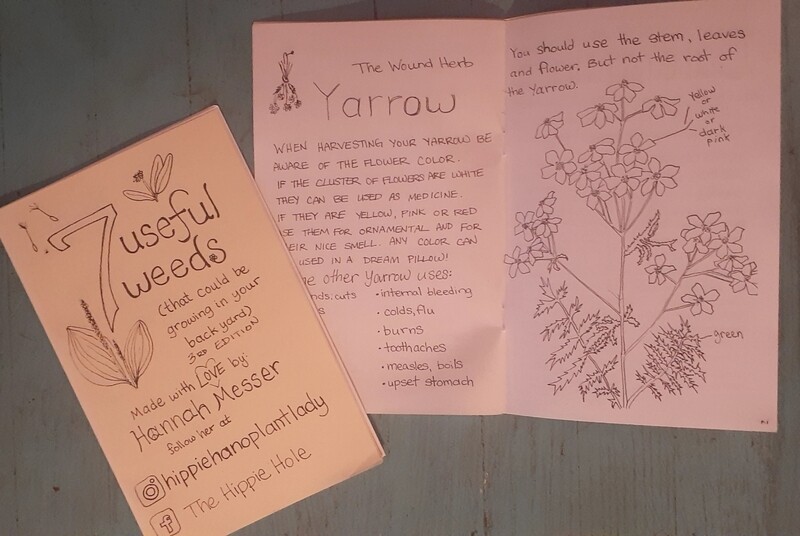 7 useful
weeds
(that could be
growing in your
back yard)
3RD EDITION
Made with LOVE by:
Hannah Messer
follow her at
hippiehanoplantlady
The Hippie Hole
The Wound Herb
Yarrow
WHEN HARVESTING YOUR YARROW BE
AWARE OF THE FLOWER COLOR.
IF THE CLUSTER OF FLOWERS ARE WHITE
THEY CAN BE USED AS MEDICINE.
IF THEY ARE YELLOW, PINK OR RED
SE THEM FOR ORNAMENTAL AND FOR
EIR NICE SMELL. ANY COLOR CAN
USED IN A DREAM PILLOW!
other Yarrow uses:
nds, cuts
• internal bleeding
• colds, flu
• burns
• toothaches
• measles, boils
• upset stomach
You should use the stem, leaves
and flower. But not the root of
the Yarrow.
yellow
or
white
or
dark
pink
green